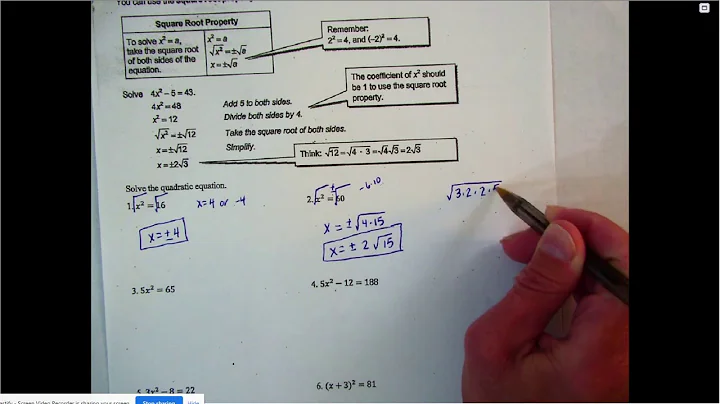 You can use the square root
Square Root Property
To solve x² = a,
take the square root
of both sides of the
equation.
x² = a
√x² = ±√a
x = ±√a
Remember:
2² = 4, and (−2)² = 4.
The coefficient of x² should
be 1 to use the square root
property.
Solve 4x² − 5 = 43.
4x² = 48 Add 5 to both sides.
x² = 12 Divide both sides by 4.
√x² = ±√12 Take the square root of both sides.
x = ±√12 Simplify.
x = ±2√3
Think: √12 = √4 · 3 = √4√3 = 2√3
Solve the quadratic equation.
1. √x² = √16 x=4 or -4
x = ± 4
2. √x² = ±√60 -6·10
x = ± √4·15
x = ± 2 √15
√3·2·2·5
3. 5x² = 65
4. 5x² − 12 = 188
5. 3x² − 8 = 22
6. (x + 3)² = 81
Screen Video Recorder is sharing your screen.
Stop sharing
Hide